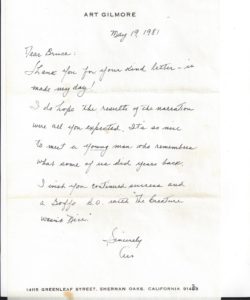 ART GILMORE
May 19, 1981
Dear Bruce:
Thank you for your kind letter - it
made my day!
I do hope the results of the narration
were all you expected. It's so nice
to meet a young man who remembers
what some of us did years back.
I wish you continued success and
a Boffo B.O. with "The Creature
wasn't Nice".
Sincerely
Art
GREENLEAF STREET, SHERMAN OAKS, CALIFORNIA